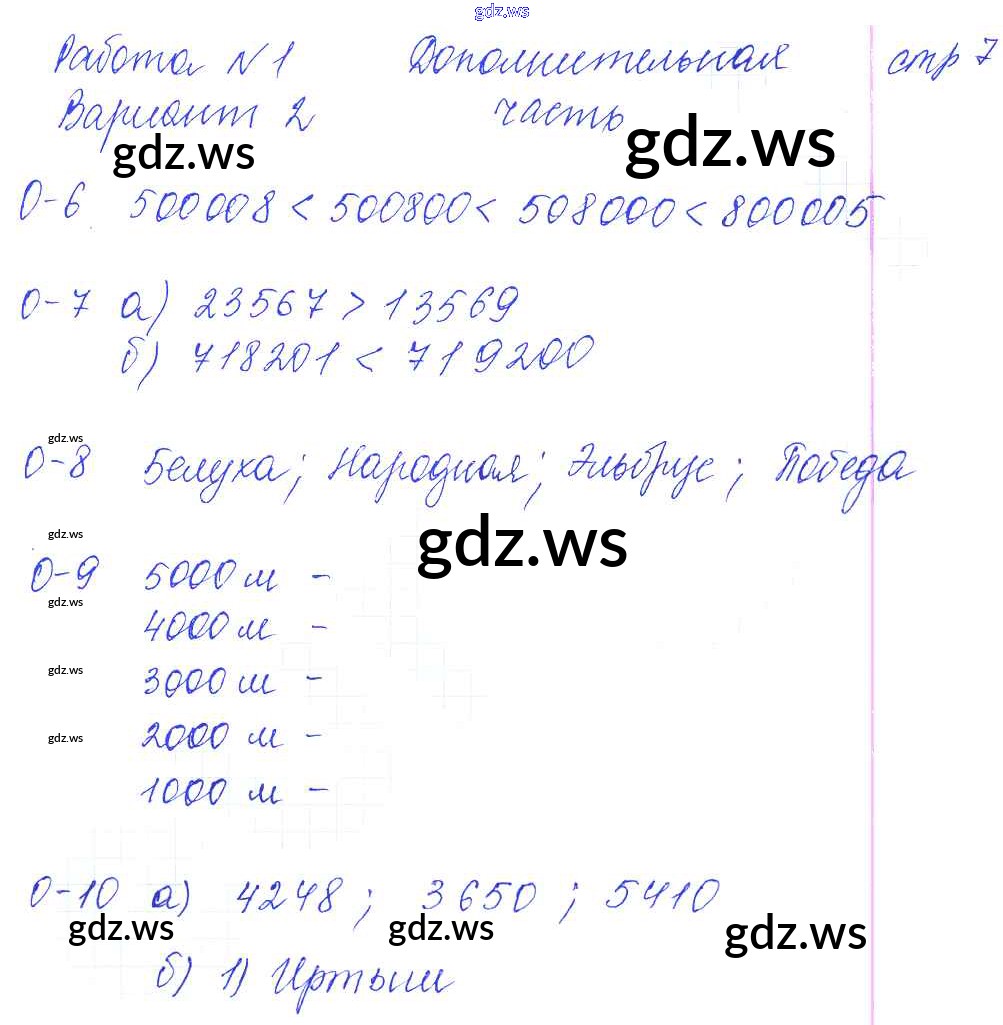 gdz.ws
Работа N 1 Дополнительная стр 7
Вариант 2 часть
gdz.ws gdz.ws
0-6 500008 < 500800 < 508000 < 800005
0-7 а) 23567 > 13569
б) 718201 < 719200
gdz.ws
0-8 Белуха; Народная; Эльбрус; Победа
gdz.ws
gdz.ws
0-9 5000 м -
gdz.ws
4000 м -
gdz.ws
3000 м -
gdz.ws
2000 м -
1000 м -
0-10 а) 4248; 3650; 5410
gdz.ws gdz.ws gdz.ws
б) 1) Иртыш